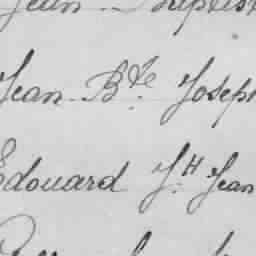 Jean Baptist
Jean Bte Joseph
Edouard J.H Jean